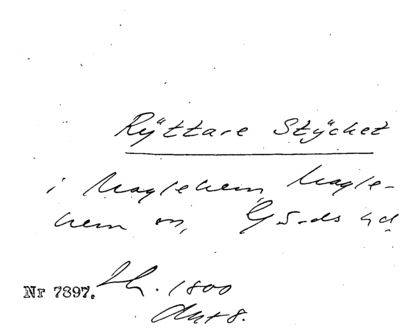 Ryttare Stycket
i Maglehem, Magle-
hem sn, Gärds hd
Nr 7897. 1800
Akt 8.